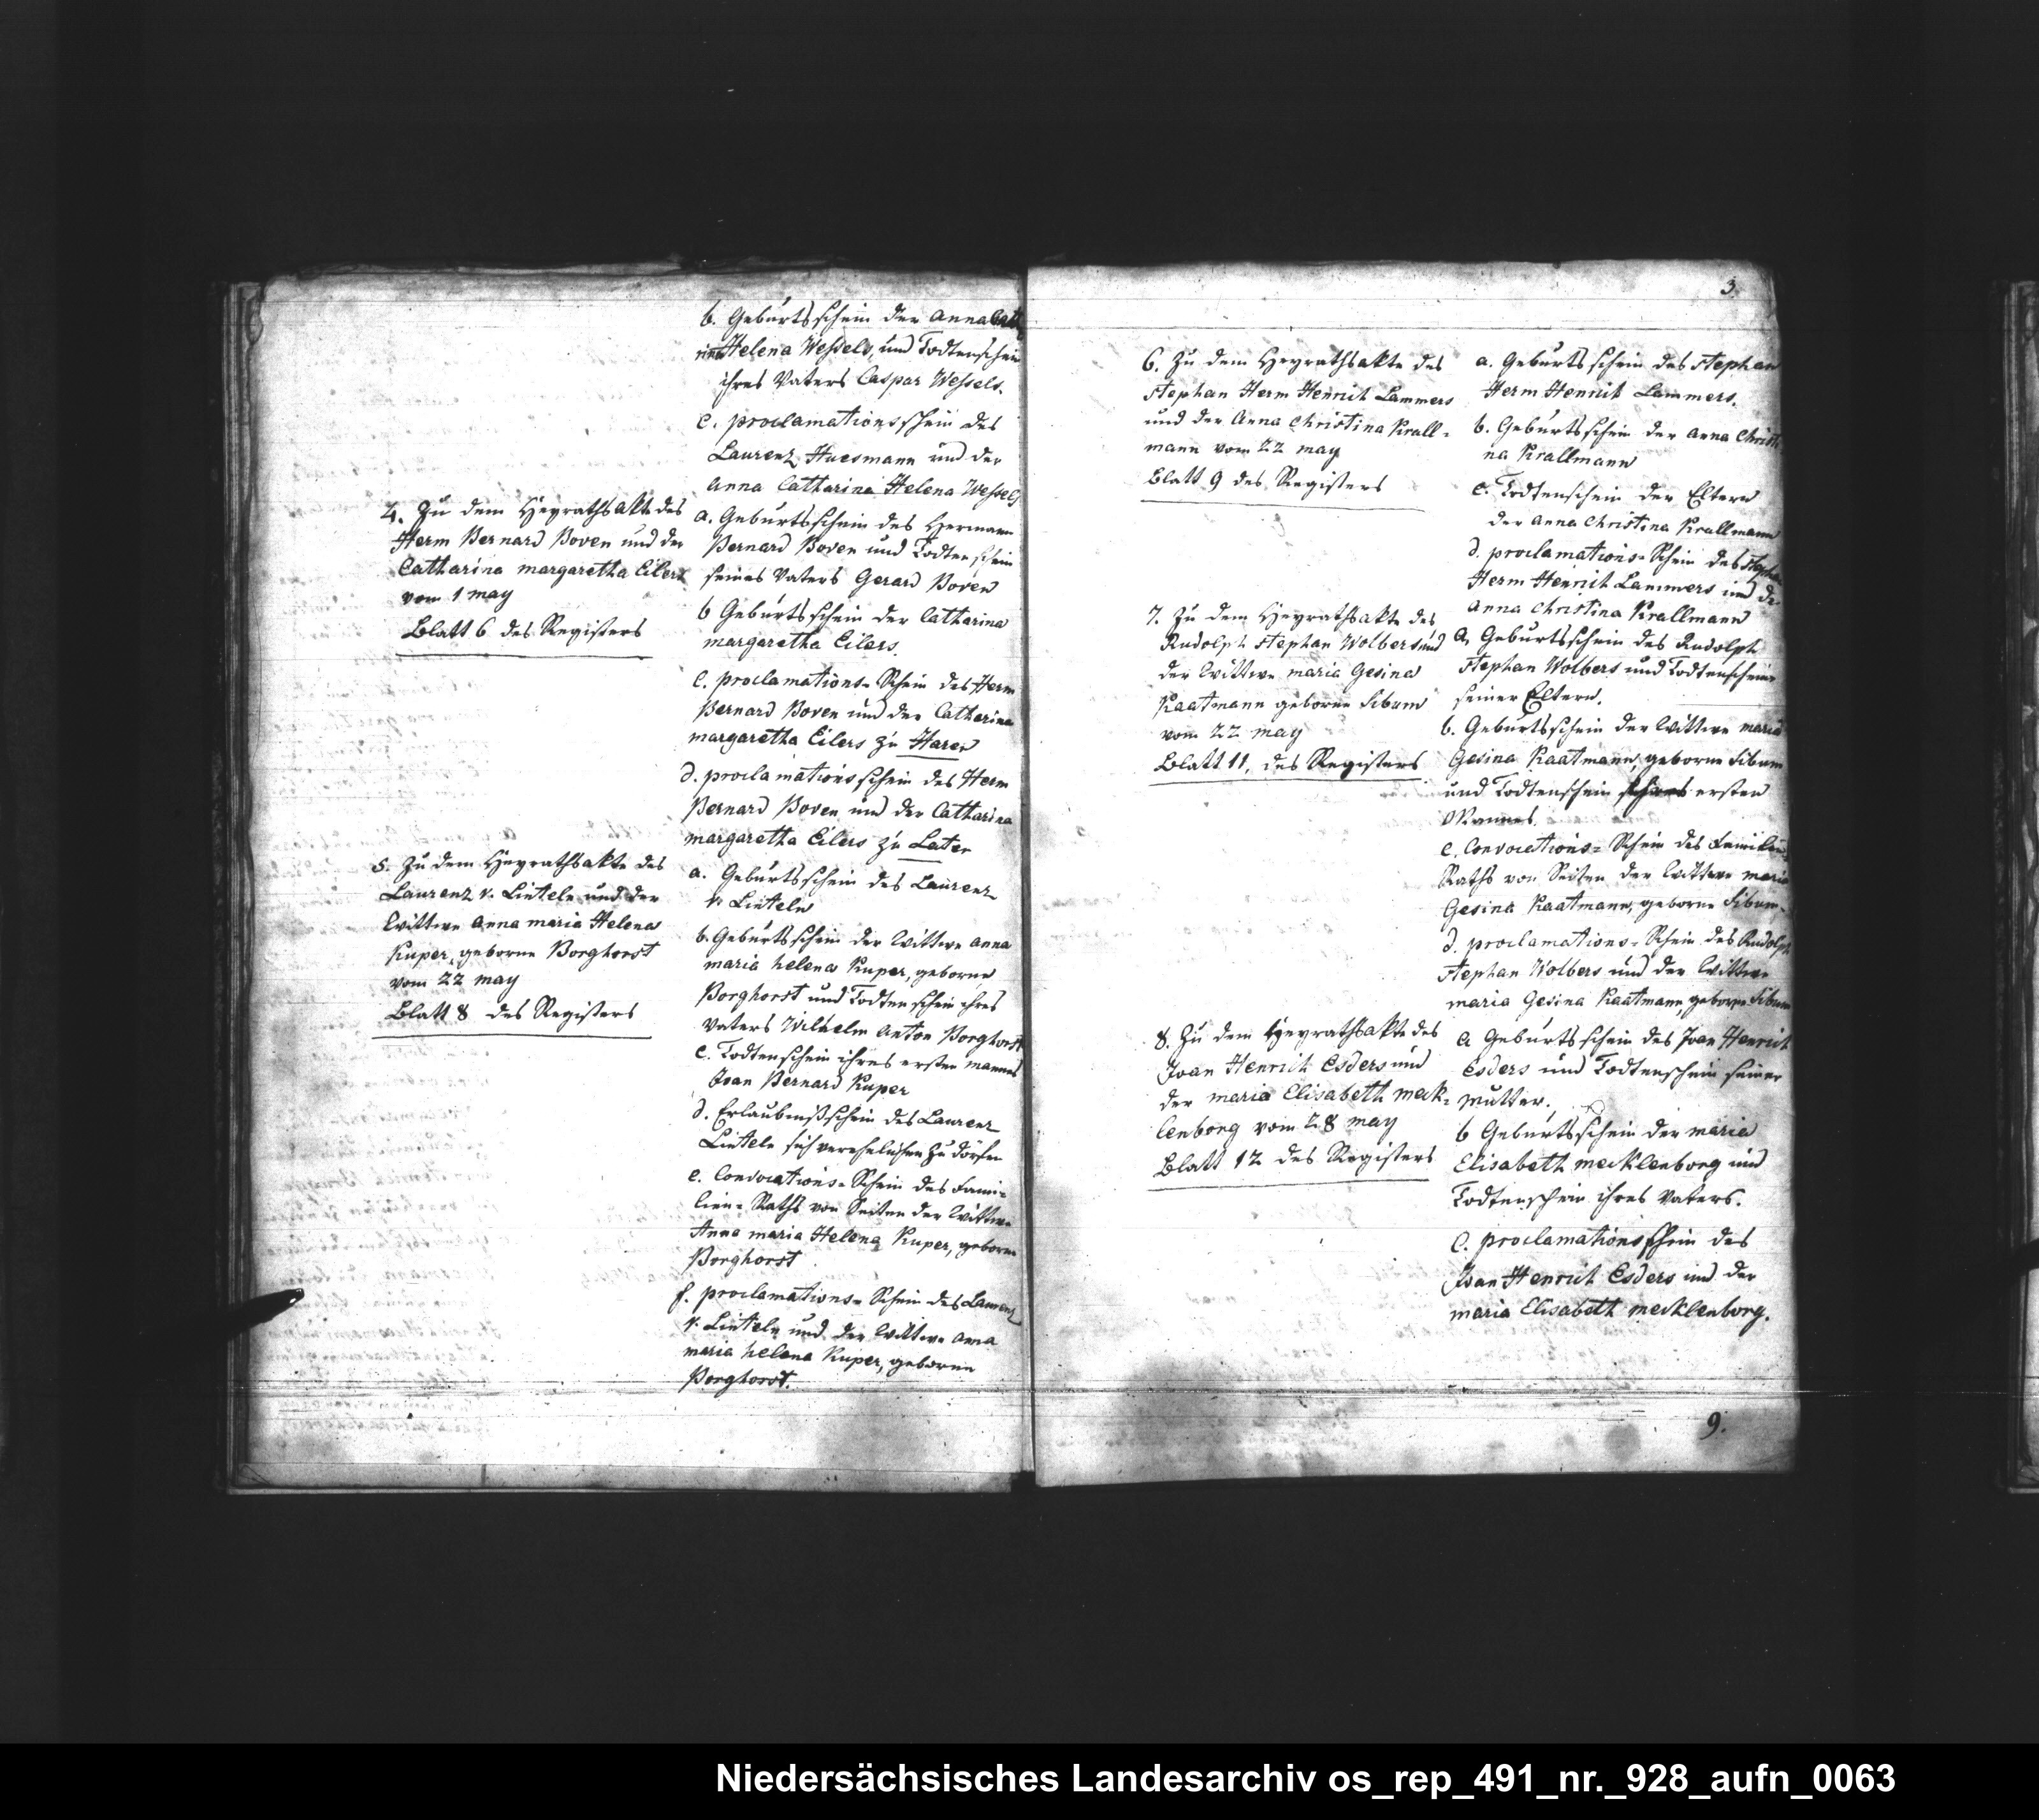 b. Geburtsschein der Anna Catha
rina Helena Wessels, und Todtenschein
ihres Vaters Caspar Wessels.
c. proclamationsschein des
Laurenz Huesmann und der
Anna Catharina Helena Wessels
4. Zu dem Heyrathsakte des
Herm Bernard Boven und der
Catharina margaretha Eilers
vom 1 may
Blatt 6 des Registers
a. Geburtsschein des Hermann
Bernard Boven und Todtenschein
seines Vaters Gerard Boven
b Geburtsschein der Catharina
margaretha Eilers.
c. proclamations-Schein des Herm
Bernard Boven und der Catharina
margaretha Eilers zu Haren
d. proclamationsschein des Herm
Bernard Boven und der Catharina
margaretha Eilers zu Laten
5. Zu dem Heyrathsakte des
Laurenz v. Linteln und der
Wittwe Anna maria Helena
Kuper, geborne Borghorst
vom 22 may
Blatt 8 des Registers
a. Geburtsschein des Laurenz
v. Linteln
b. Geburtsschein der Wittwe Anna
maria helena Kuper, geborne
Borghorst und Todtenschein ihres
Vaters Wilhelm Anton Borghorst
c. Todtenschein ihres ersten mannes
Joan Bernard Kuper
d. Erlaubnißschein des Laurenz
Linteln sich verehelichen zu dörfen
e. Convocations-Schein des Fami-
lien-Raths von Seiten der Wittwe
Anna maria Helena Kuper, geborne
Borghorst
f. proclamations-Schein des Laurenz
v. Linteln und der Wittwe Anna
maria helena Kuper, geborne
Borghorst.
3.
6. Zu dem Heyrathsakte des
Stephan Herm Henrich Lammers
und der Anna Christina Krall-
mann vom 22 may
Blatt 9 des Registers
a. Geburtsschein des Stephan
Herm Henrich Lammers.
b. Geburtsschein der Anna Christi
na Krallmann
c. Todtenschein der Eltern
der Anna Christina Krallmann
d. proclamations-Schein des Stephan
Herm Henrich Lammers und der
Anna Christina Krallmann
7. Zu dem Heyrathsakte des
Rudolph Stephan Wolbers und
der Wittwe maria Gesina
Kaatmann geborne Sibum
vom 22 may
Blatt 11. des Registers
a. Geburtsschein des Rudolph
Stephan Wolbers und Todtenscheine
seiner Eltern.
b. Geburtsschein der Wittwe maria
Gesina Kaatmann, geborne Sibum
und Todtenschein ihres ersten
Mannes
c. Convocations-Schein des Familien
Raths von Seiten der Wittwe maria
Gesina Kaatmann, geborne Sibum.
d. proclamations-Schein des Rudolph
Stephan Wolbers und der Wittwe
maria Gesina Kaatmann, geborne Sibum
8. Zu dem Heyrathsakte des
Joan Henrich Esders und
der maria Elisabeth meck-
lenborg vom 28 may
Blatt 12 des Registers
a Geburtsschein des Joan Henrich
Esders und Todtenschein seiner
Mutter.
b Geburtsschein der maria
Elisabeth mecklenborg und
Todtenschein ihres Vaters.
c. proclamationsschein des
Joan Henrich Esders und der
maria Elisabeth mecklenborg.
9.
Niedersächsisches Landesarchiv os_rep_491_nr._928_aufn_0063